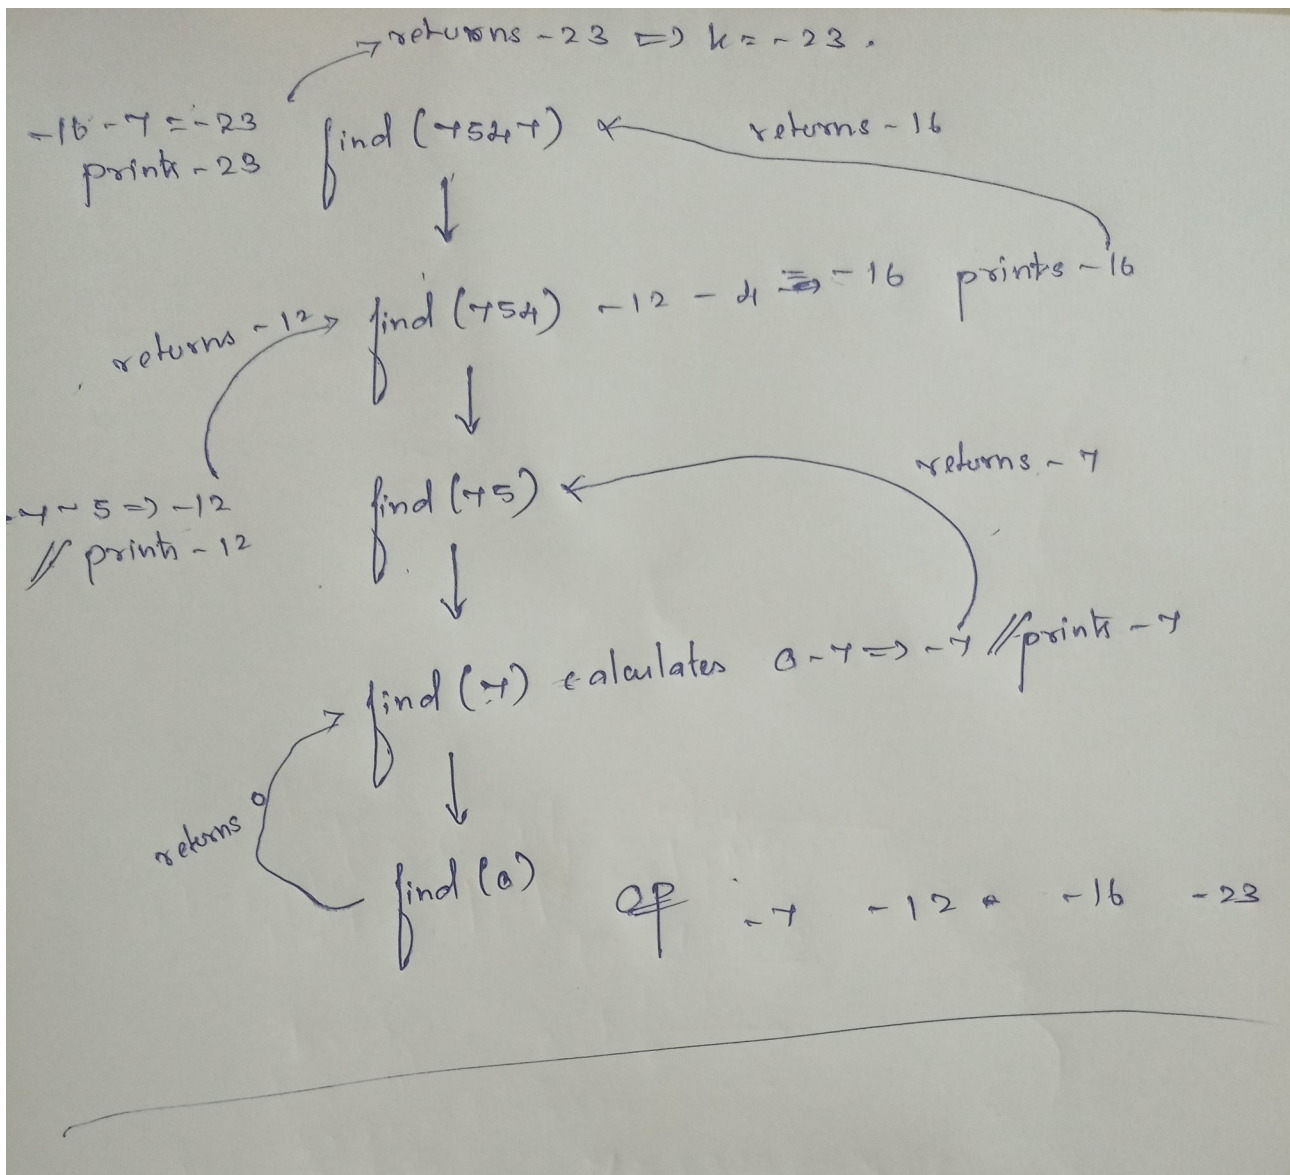 returns -23 => k = -23.
-16 - 7 = -23
prints -23
find (7547)
returns -16
find (754) -12 - 4 => -16 prints -16
returns -12
find (75)
returns -7
-7 - 5 => -12
// prints -12
find (7) calculates 0-7 => -7 // prints -7
returns 0
find (0)
OP -7 -12 -16 -23